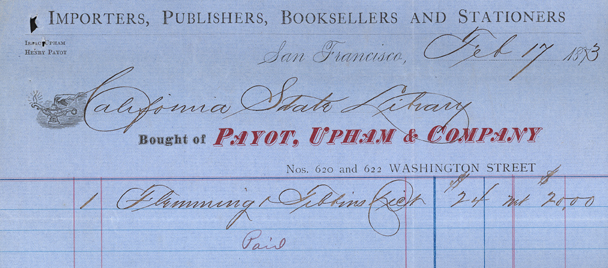 IMPORTERS, PUBLISHERS, BOOKSELLERS AND STATIONERS
ISAAC UPHAM
HENRY PAYOT
San Francisco, Feb 17 1873
California State Library
Bought of PAYOT, UPHAM & COMPANY
Nos. 620 and 622 WASHINGTON STREET
$ $
1 Flemming & Tibbins Dict 24 net 20,00
Paid